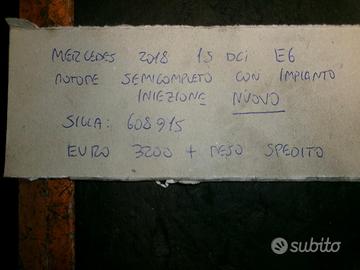 MERCEDES 2018 1.5 DCI E6
MOTORE SEMICOMPLETO CON IMPIANTO
INIEZIONE NUOVO
SIGLA: 608915
EURO 3200 + RESO SPEDITO
subito